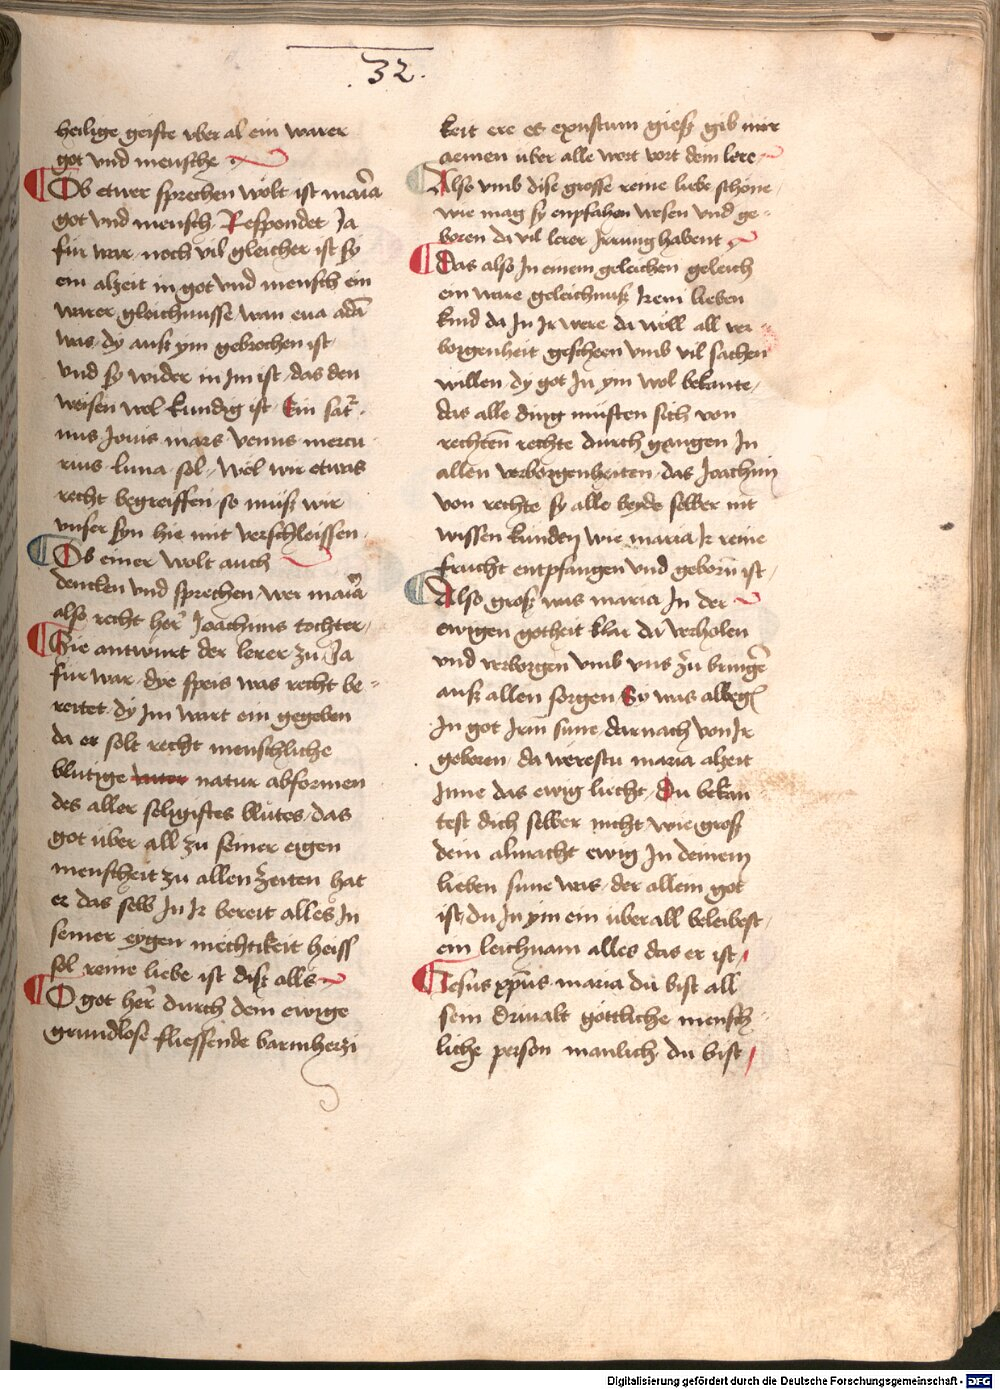 32.
heilige geiste vber al ein warer
got vnd mensche
Ob etwer sprechen wolt ist maria
got vnd mensch Respondet Ja
für war noch vil gleicher ist sy
ein alzeit in got vnd mensch ein
warer gleichnusse wan eua adā
was dy ausz ym gebrochen ist
vnd sy wider in im ist das den
weisen wol kundig ist Ein sat²
nus Jouis mars venus mercu
rius luna sol Wöl wir etwas
recht begreiffen so müsz wir
vnser syn hie mit verschleissen
Ob einer wolt auch
dencken vnd sprechen wer maria
also recht her Joachims tochter
Hie antwurt der lerer zu Ja
für war dye speis was recht be
reitet dy Im wart ein gegeben
da er solt recht menschliche
blutige natur abformen
des aller seligistes blutes das
got über all zu seiner eigen
menscheit zu allen Zeiten hat
er das selb In Ir bereit alles In
seiner eygen mechtikeit heiss
sol reine liebe ist disz alls
O got her durch dem ewige
grundlose fliessende barmherzi
keit ere es giesz gib mir
aemen über alle wort vort dem lere
Also vmb dise grosse reine liebe schöne
wie mag sy enpfahen wesen vnd ge
boren da vil lerer Irrung habent
Das also In einem geleichen geleich
ein ware geleichnusz Irem lieben
kind da In Ir were da wöll all ver
borgenheit gescheen vmb vil sachen
willen dy got In ym wol bekante
das alle ding müsten sich von
rechten rechte durch gangen In
allen verborgenheiten das Joachim
von rechte sy alle beyde selber nit
wissen kunden wie maria Ir reine
frucht entpfangen vnd geborn ist
Also grosz was maria In der
ewigen gotheit klar da verholen
vnd verborgen vmb vns zu bringē
ausz allen sorgen Sy was albeg
In got Irm sune darnach von Ir
geboren da werestu maria alzeit
Inne das ewig liecht Du bekan
test dich selber nicht wie grosz
dein almacht ewig In deinem
lieben sune was der allein got
ist du In ym ein überall beleibest
ein leichnam alles das er ist
Jesus xp̄us maria du bist all
sein driualt göttliche mensch
liche person manlich du bist
Digitalisierung gefördert durch die Deutsche Forschungsgemeinschaft - DFG